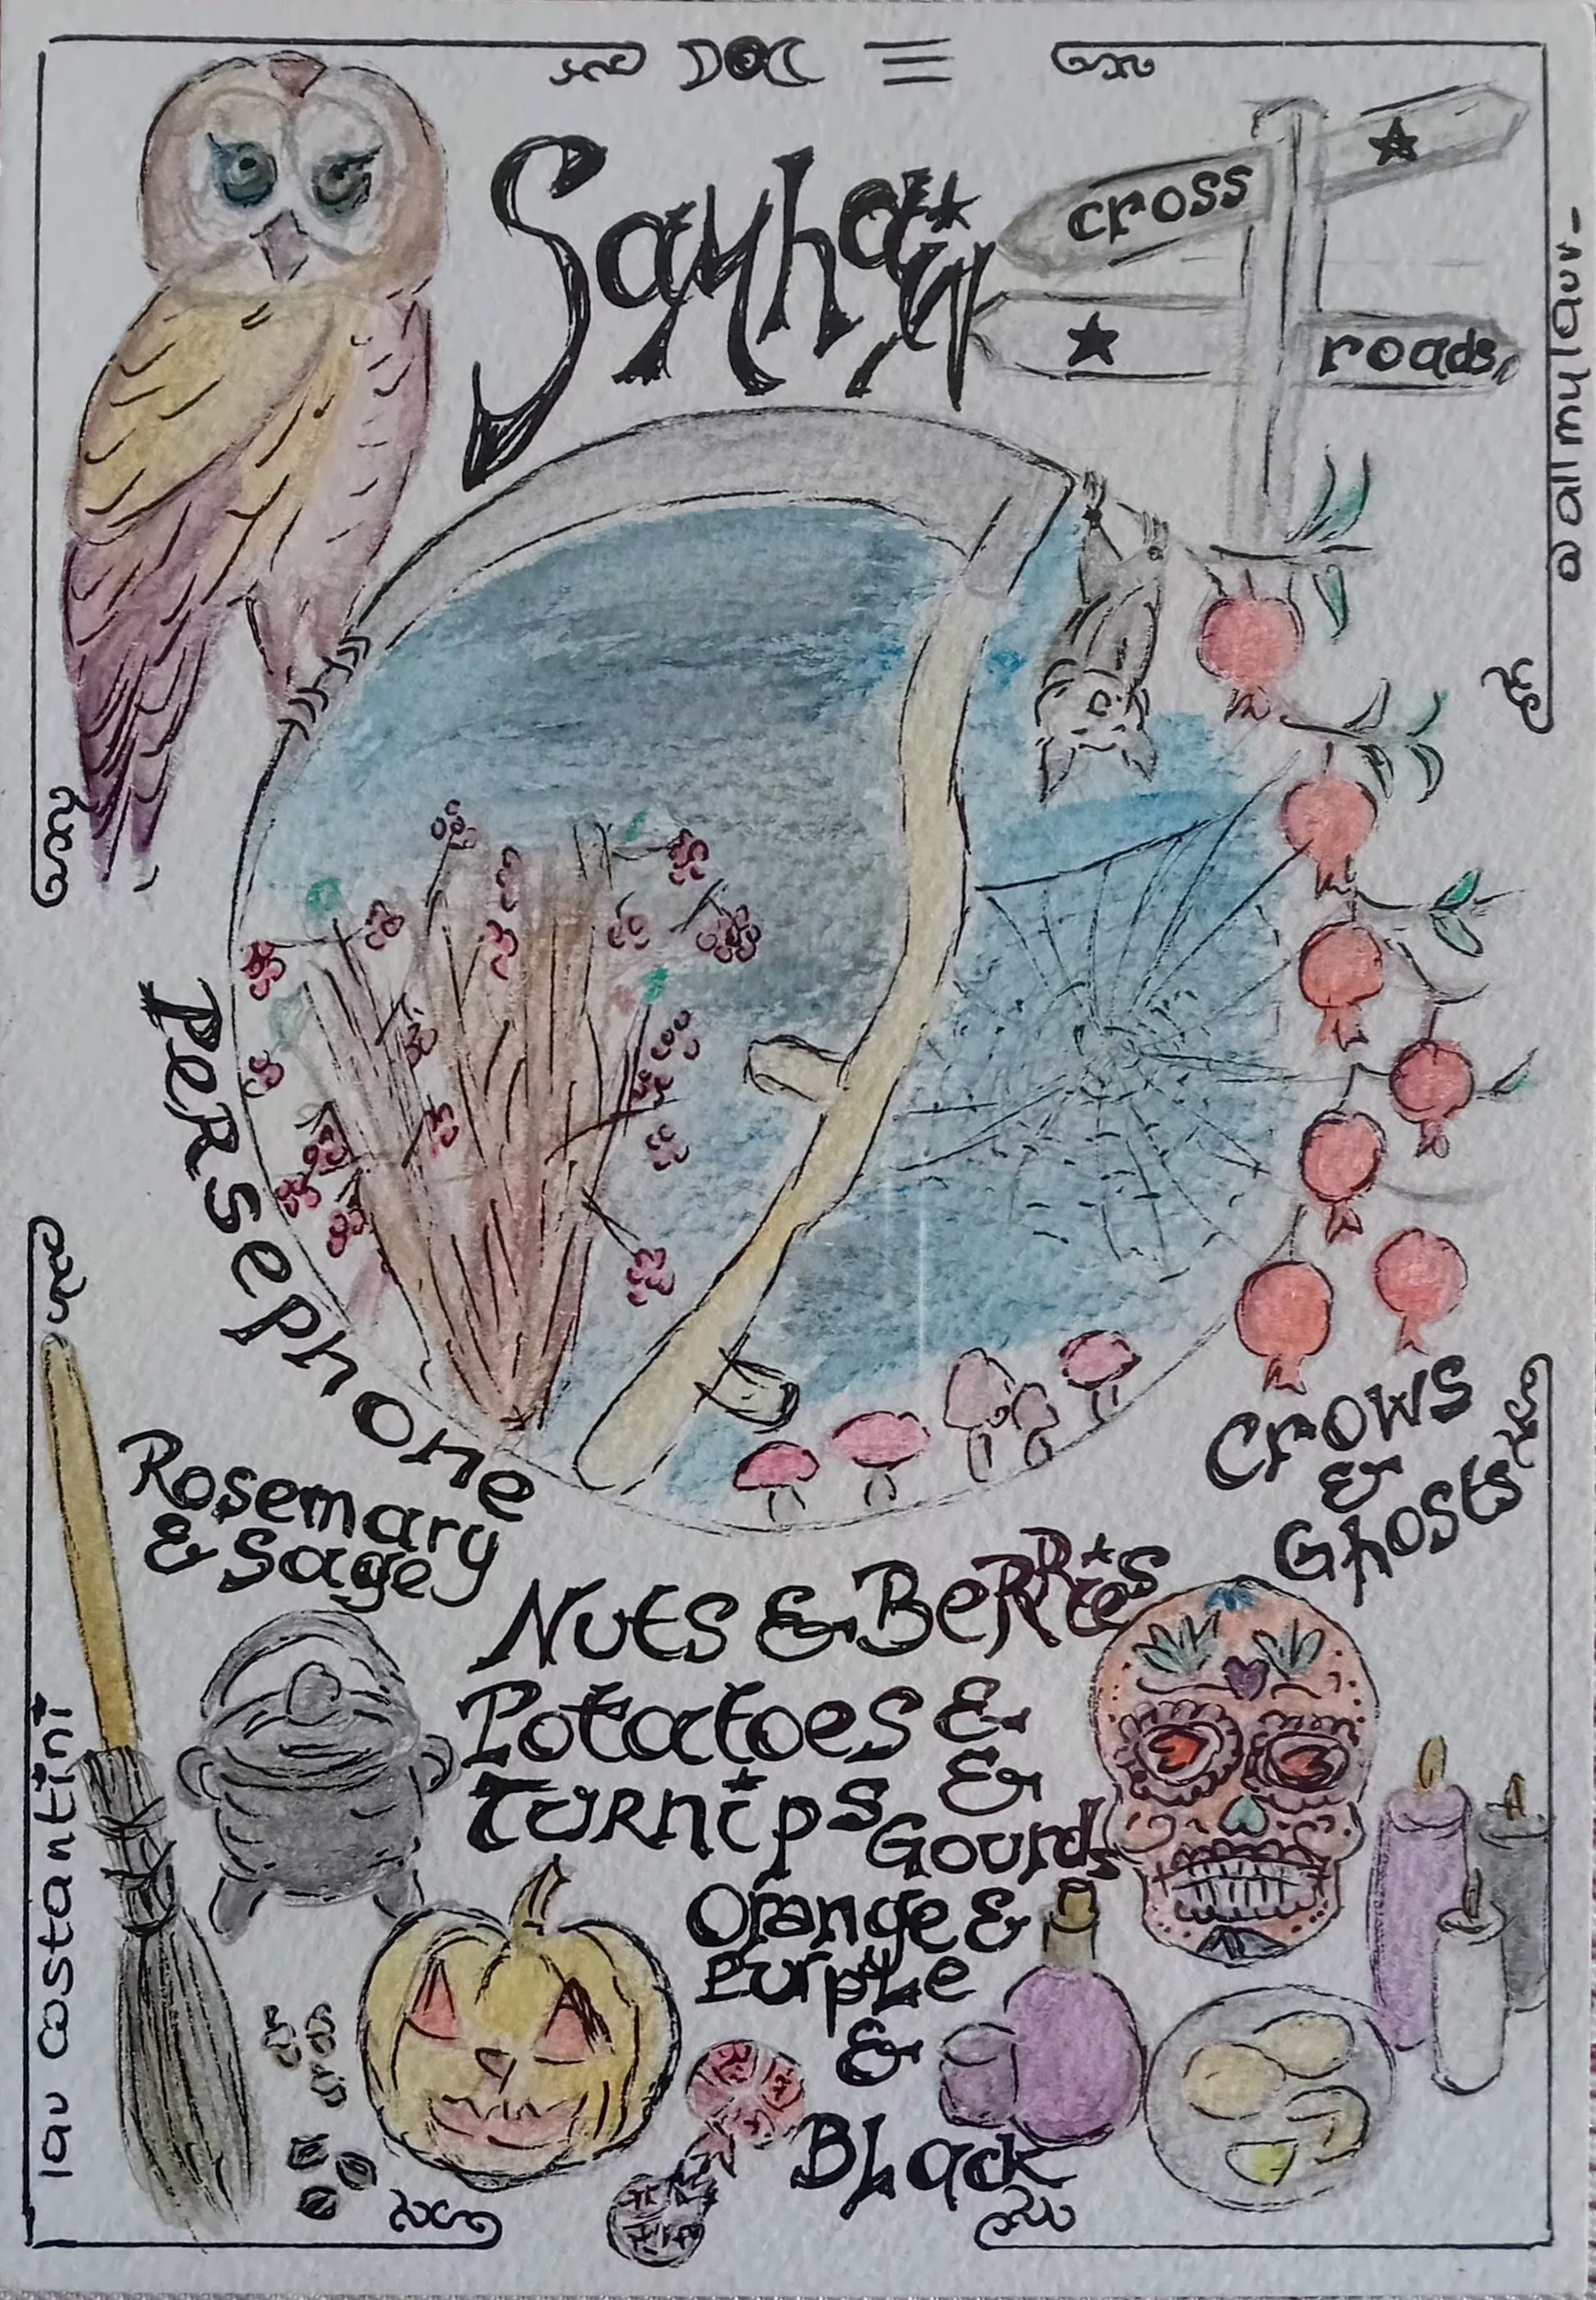 Samhain
cross
roads
@allmylaur-
Persephone
Rosemary
& Sage
Crows
&
Ghosts
Nuts & Berries
Potatoes &
Turnips &
Gourds
Orange &
Purple
&
Black
lau costantini